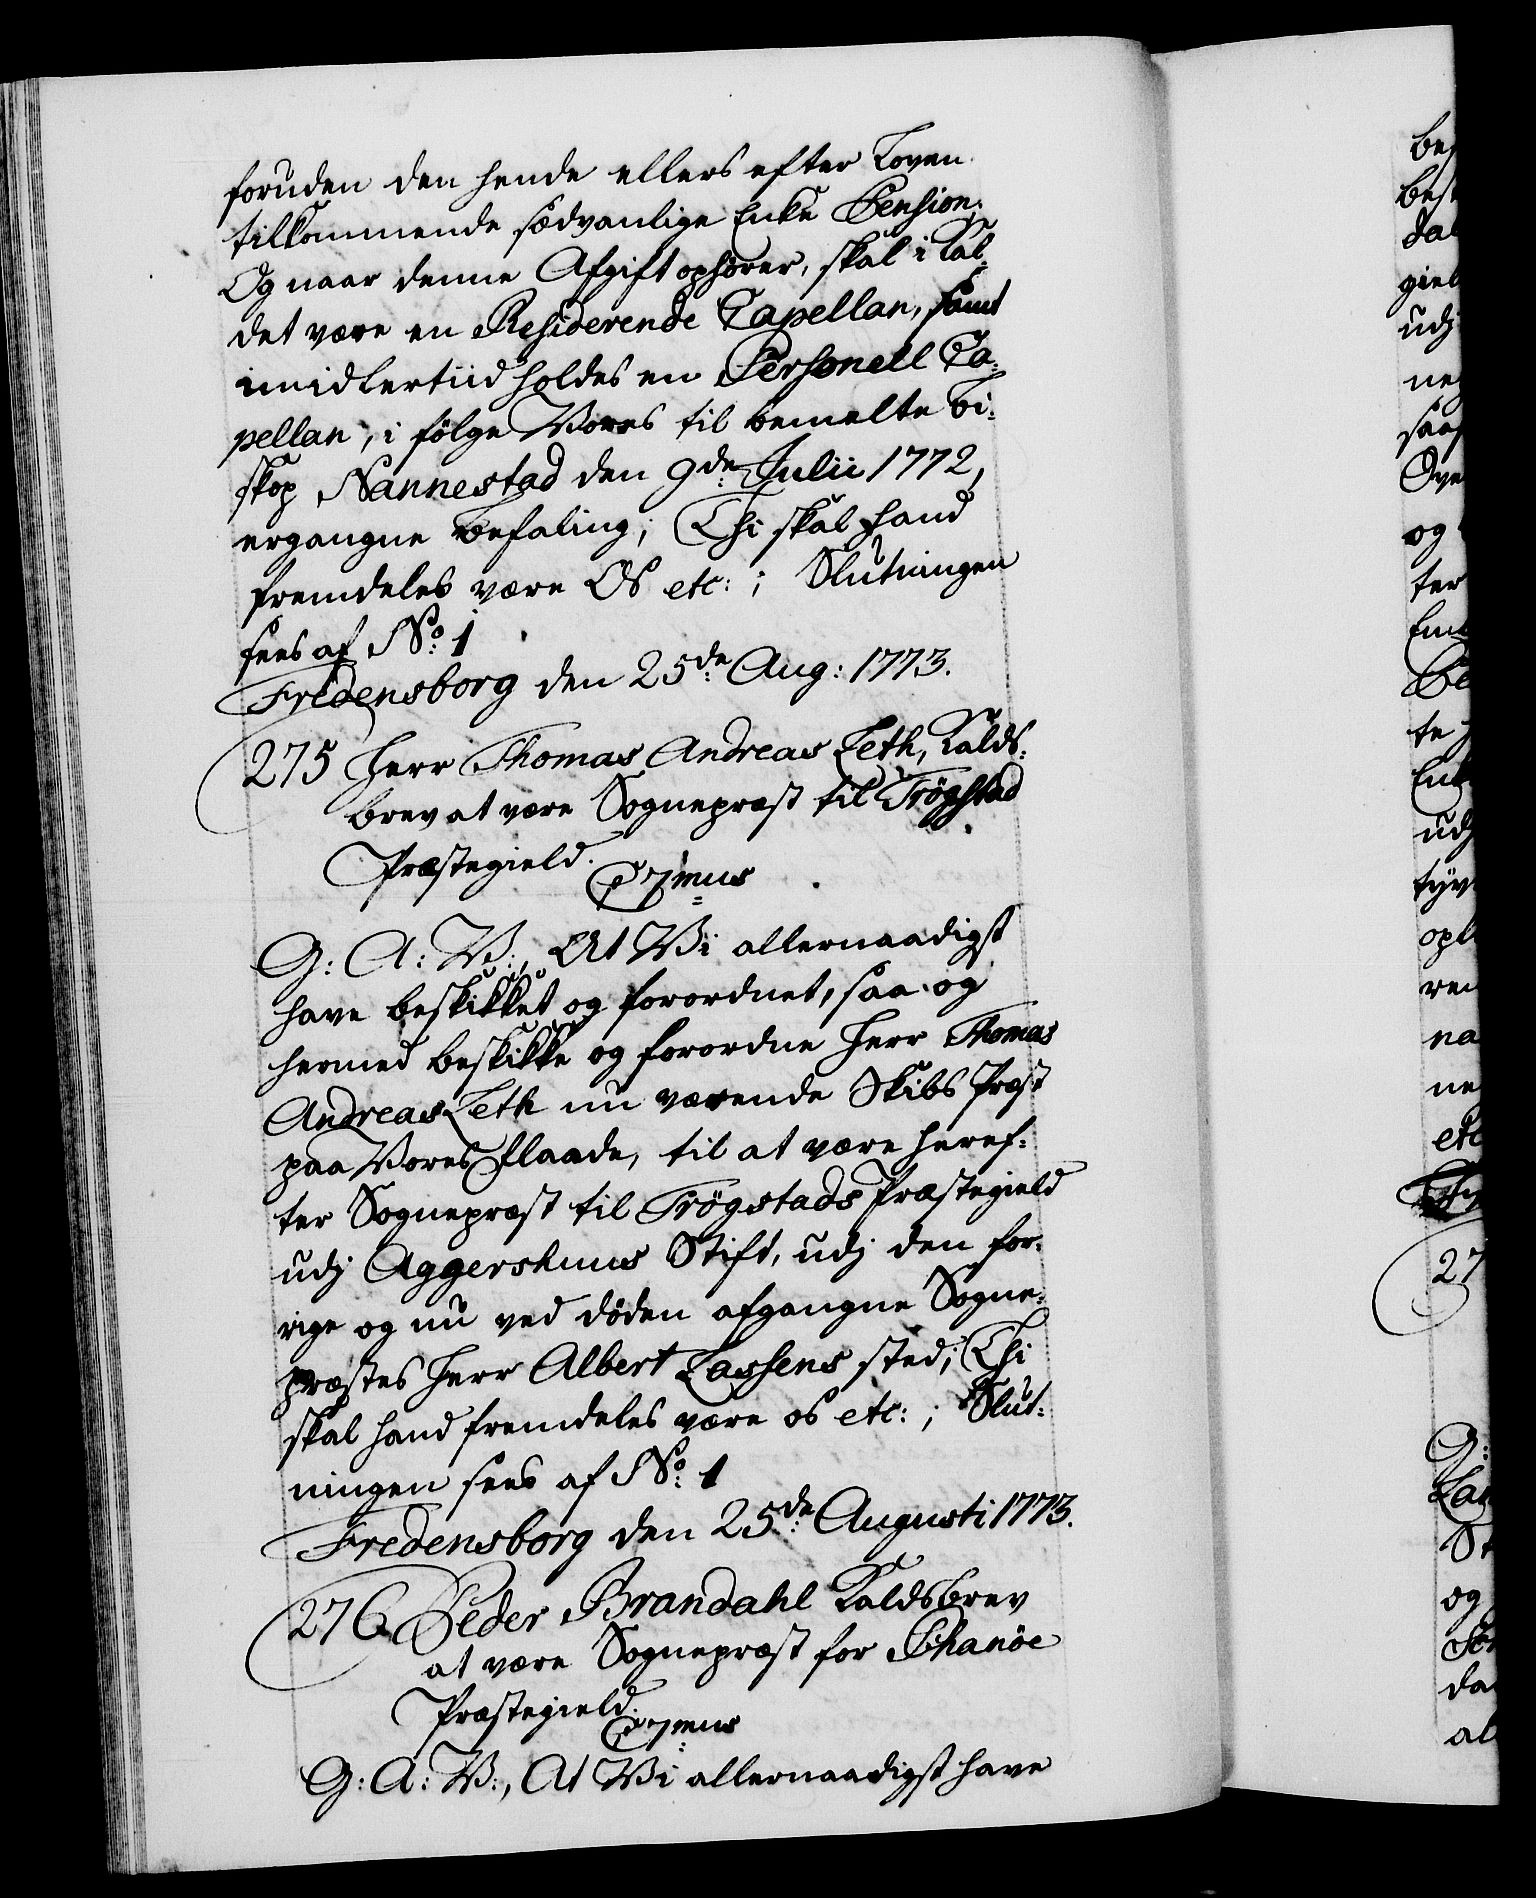 foruden den hende ellers efter Loven
tilkommende sædvanlige Enke Pension;
Og naar denne Afgift ophører, skal i Kal-
det være en Residerende Capellan, samt
imidlertiid holdes en Personell Ca-
pellan, i følge Vores til bemelte Bi-
skop Nannestad den 9de Julii 1772,
ergangne Befaling; Thi skal hand
fremdeles være Os etc:; Slutningen
sees af No: 1
Fredensborg den 25de Aug: 1773.
275 Herr Thomas Andreas Leth, Kalds-
brev at være Sognepræst til Trögstad
Præstegield.
C 7mus
G: A: V:, At Vi allernaadigst
have beskikket og forordnet, saa og
hermed beskikke og forordne Herr Thomas
Andreas Leth nu værende Skibs Præst
paa Vores Flaade, til at være heref-
ter Sognepræst til Trögstads Præstegield
udj Aggershuus Stift, udj den for-
rige og nu ved döden afgangne Sogne-
præstes Herr Albert Lassens sted; Thi
skal hand fremdeles være os etc:; Slut-
ningen sees af No: 1
Fredensborg den 25de Augusti 1773.
276 Peder Brandahl Kaldsbrev
at være Sognepræst for Schanöe
Præstegield.
C 7mus
G: A: V:, At Vi allernaadigst have